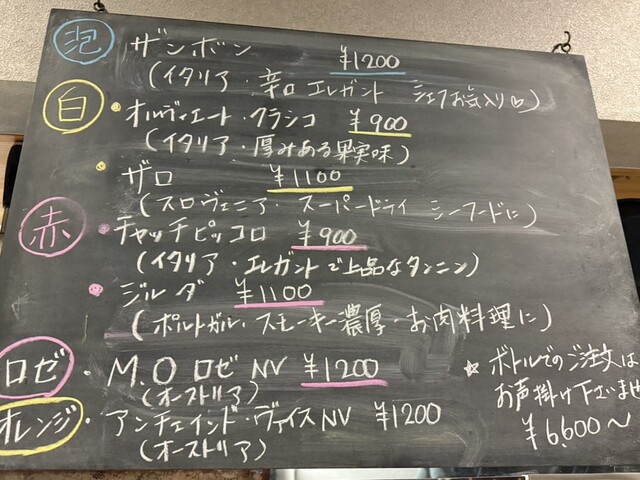 泡 ザンボン ¥1200
(イタリア・辛口 エレガント シェフお気入り♡)
白 ・オルヴィエート・クラシコ ¥900
(イタリア・厚みある果実味)
・ザロ ¥1100
(スロヴェニア・スーパードライ シーフードに)
赤 ・チャッチピッコロ ¥900
(イタリア・エレガントで上品なタンニン)
・ジルダ ¥1100
(ポルトガル・スモーキー濃厚・お肉料理に)
ロゼ ・M.O ロゼ NV ¥1200
(オーストリア)
オレンジ ・アンチェインド・ヴァイス NV ¥1200
(オーストリア)
☆ ボトルでのご注文は
お声掛け下さいませ
¥6,600〜